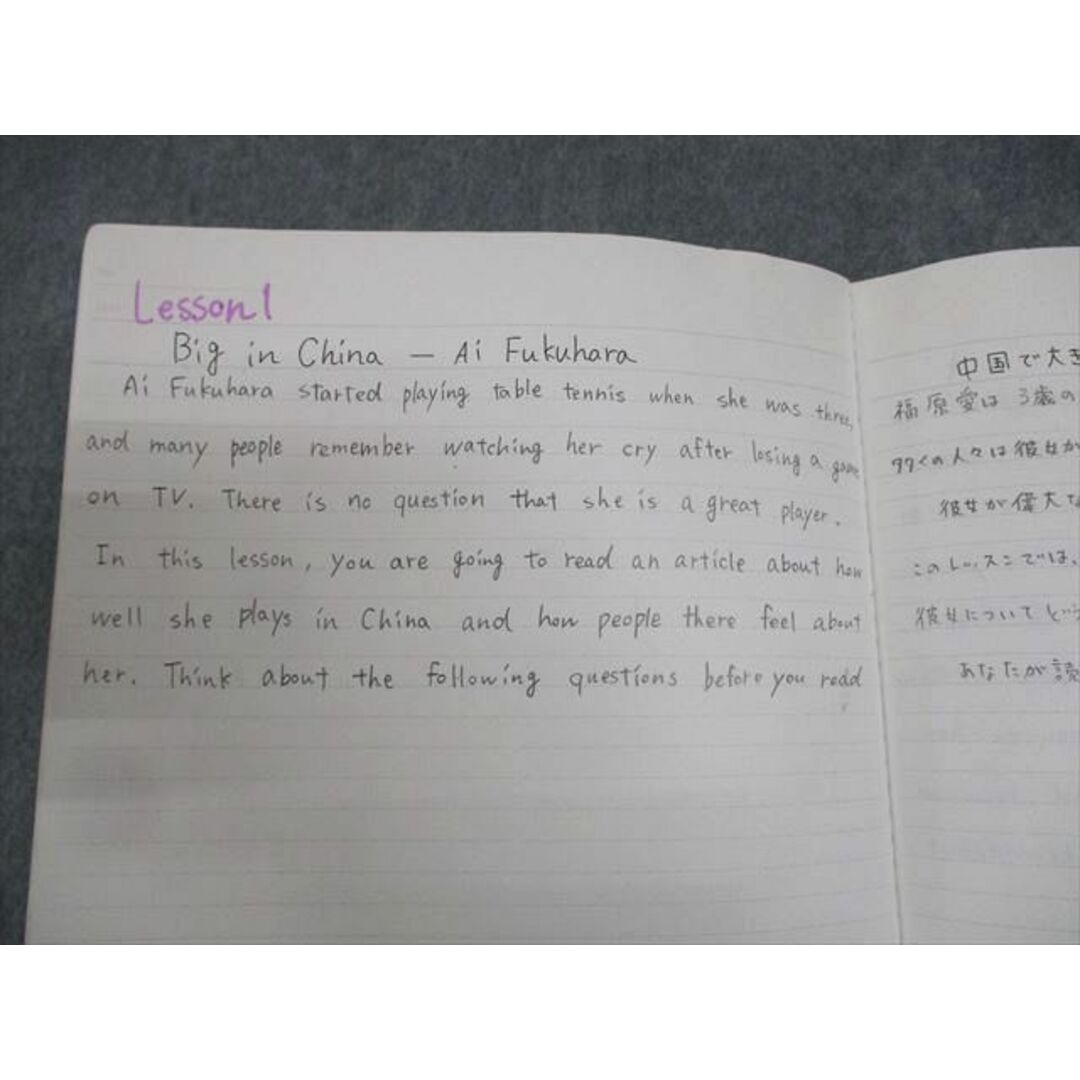 Lesson 1
Big in China — Ai Fukuhara
Ai Fukuhara started playing table tennis when she was three,
and many people remember watching her cry after losing a game
on TV. There is no question that she is a great player.
In this lesson, you are going to read an article about how
well she plays in China and how people there feel about
her. Think about the following questions before you read
中国で大き
福原愛は3歳の
多くの人々は彼女が
彼女が偉大な
このレッスンでは、
彼女についてどう
あなたが読